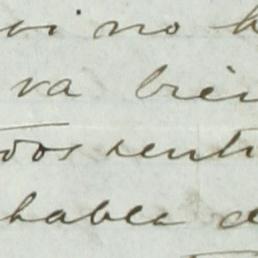 no h
va bien
dos senti
hable d